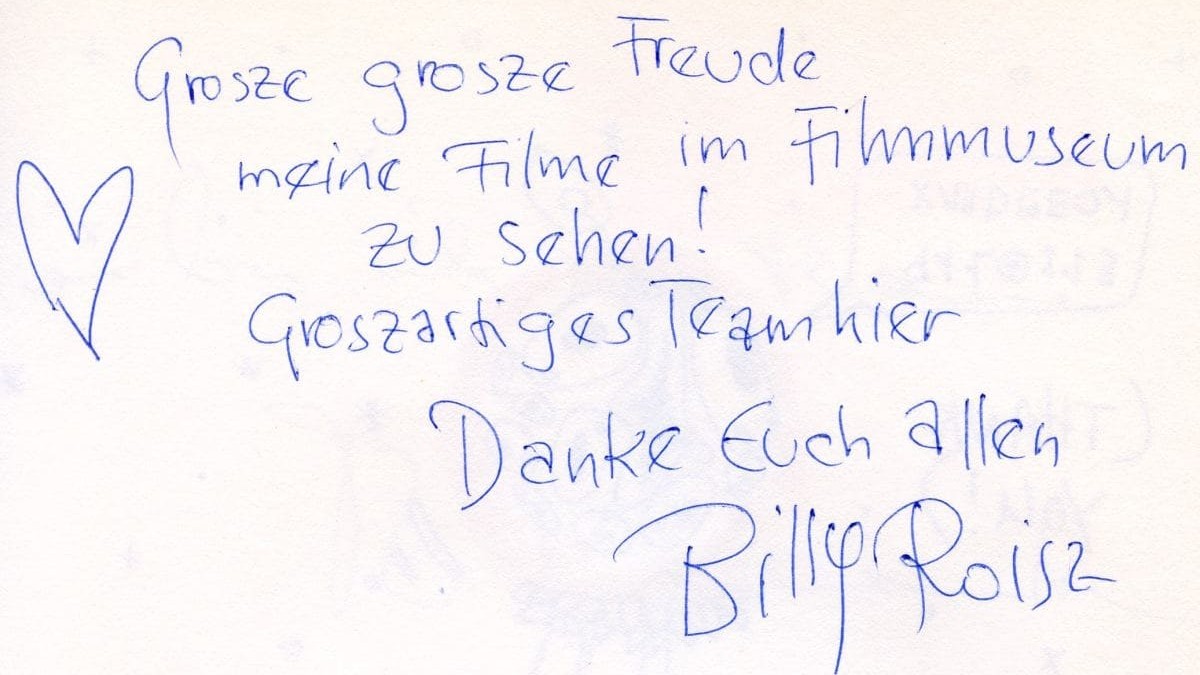 Grosze grosze Freude
meine Filme im Filmmuseum
zu sehen!
Groszartiges Team hier
Danke Euch allen
Billy Roisz